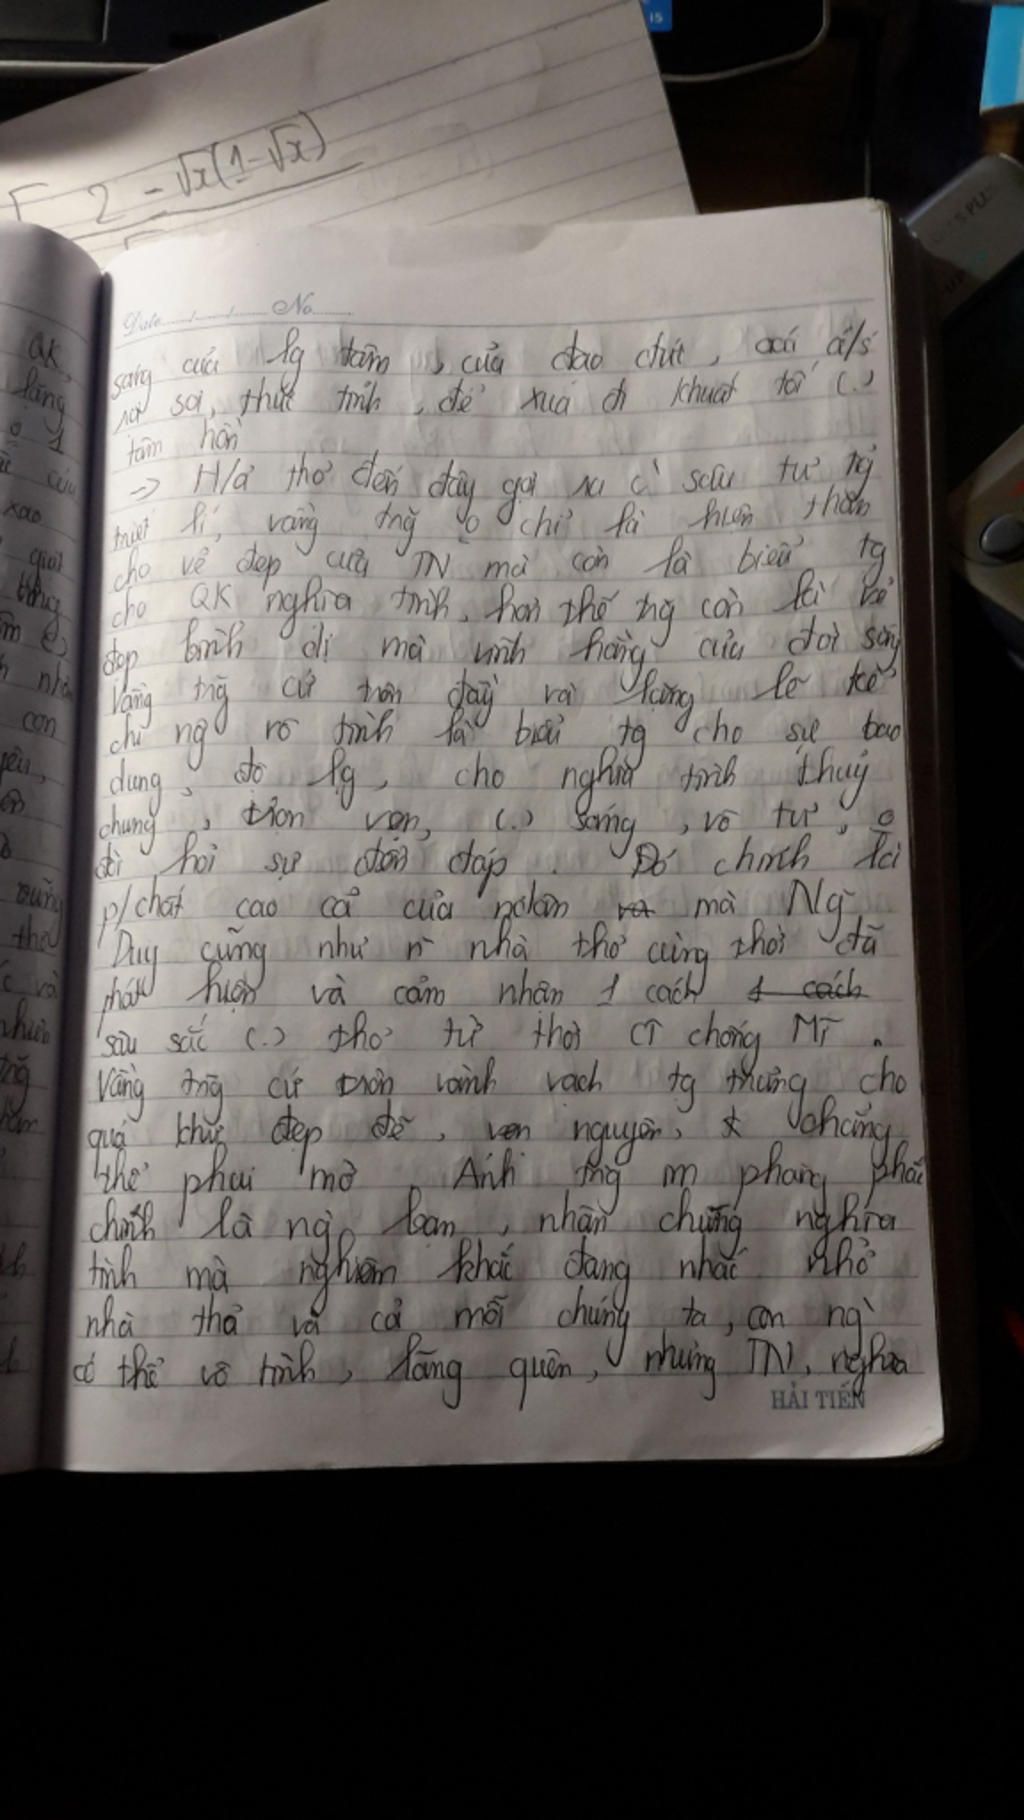 15
2 - √x(1-√x)
Date No
sáng của lg tâm, của đạo đức, cái á/s
rọi soi, thức tỉnh, để xua đi khuất tối (.)
tâm hồn
-> H/ả thơ đến đây gợi ra c' sâu tư tg
triết lí, vầng trg o chỉ là hiện thân
cho vẻ đẹp của TN mà còn là biểu tg
cho QK nghĩa tình, hơn thế trg còn là vẻ
đẹp bình dị mà vĩnh hằng của đời sống
Vầng trg cứ tròn đầy và lặng lẽ kể
chi ng vô tình là biểu tg cho sự bao
dung, độ lg, cho nghĩa tình thuỷ
chung, trọn vẹn, (.) sáng, vô tư, o
đòi hỏi sự đền đáp. Đó chính là
p/chất cao cả của mà Ng~
Duy cũng như n~ nhà thơ cùng thời đã
phát hiện và cảm nhận 1 cách 1 cách
sâu sắc (.) thơ từ thời CT chống Mĩ.
Vầng trg cứ tròn vành vạch tg trưng cho
quá khứ đẹp đẽ, vẹn nguyên, chẳng
thể phai mờ. Ánh trg im phăng phắc
chính là ng` bạn, nhân chứng nghĩa
tình mà nghiêm khắc đang nhắc nhở
nhà thơ và cả mỗi chúng ta, con ng`
có thể vô tình, lãng quên, nhưng TN, nghĩa
HẢI TIẾN
QK,
lãng
xao
con
thể